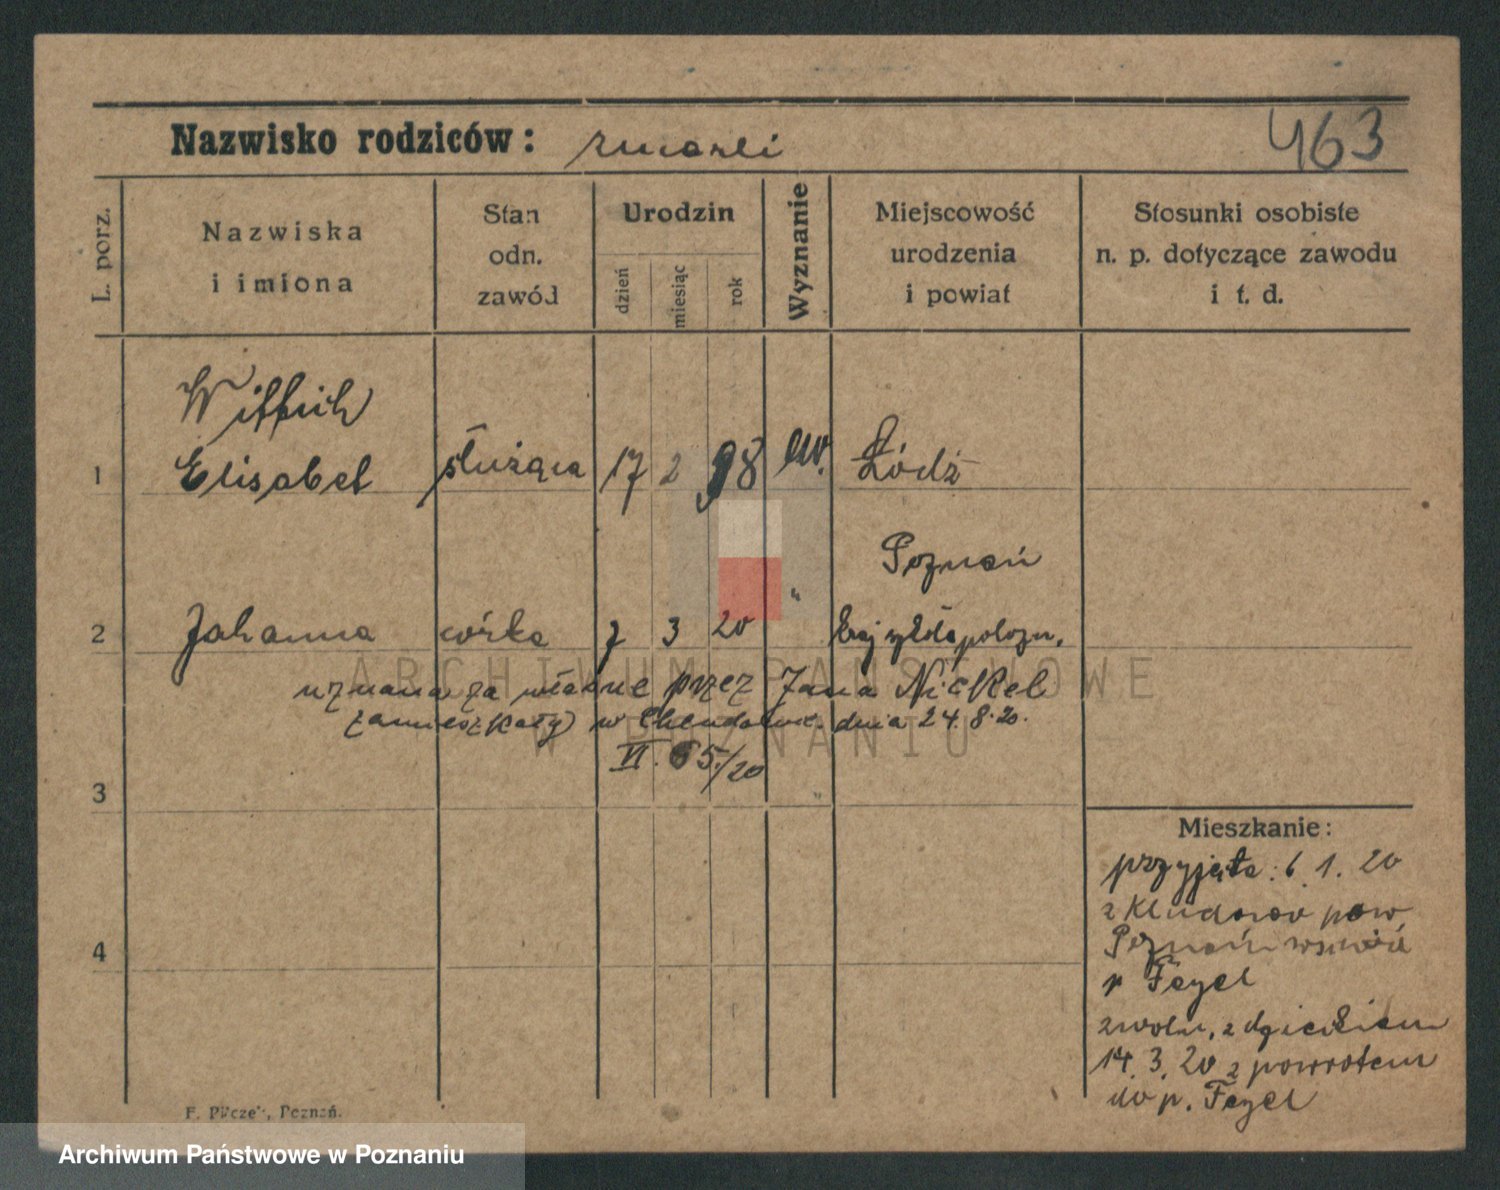 Nazwisko rodziców: zmarli
463
L. porz.
Nazwiska
i imiona
Stan
odn.
zawód
Urodzin
dzień
miesiąc
rok
Wyznanie
Miejscowość
urodzenia
i powiat
Stosunki osobiste
n. p. dotyczące zawodu
i t. d.
Wittich
1 Elisabet służąca 17 2 98 ew. Łódź
Poznań
2 Johanna córka 7 3 20 " kraj szkoła położn.
uznana za własne przez Jana Nickel
zamieszkały w dnia 24.8.20.
VI. 65/20
3
4
Mieszkanie:
przyjęta: 6.1.20
z pow
Poznań
p Fegel
zwoln. z dzieckiem
14.3.20 z powrotem
do p. Fegel
F. Pilczek, Poznań.
ARCHIWUM PAŃSTWOWE
W POZNANIU
Archiwum Państwowe w Poznaniu